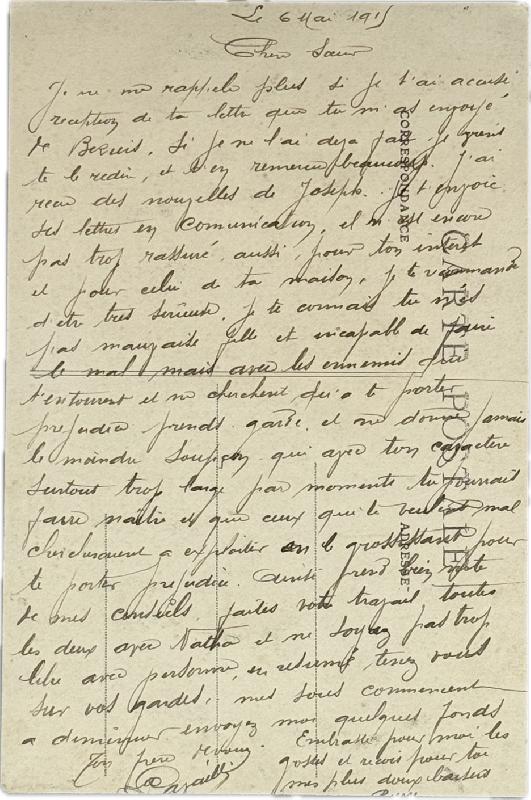 Le 6 Mai 1915
Cher Sœur
Je ne me rappele plus si je t'ai accusé
reception de ta lettre que tu m'as envoyé
de . Si je ne l'ai deja fait je viens
te le redire, et t'en remercie beaucoup. J'ai
recu des nouvelles de Joseph. Je t'envoie
ses lettres en communication, il n'est encore
pas trop rassuré, aussi, pour ton interet
et pour celui de ta maison, je te recommande
d'etre tres serieuse, je te connais tu n'es
pas mauvaise fille et incapable de faire
le mal, mais avec les ennemis qui
t'entourent et ne cherchent qu'a te porter
prejudice prends garde, et ne donne jamais
le moindre soupçon qui avec ton caractere
surtout trop large par moments tu pourrait
faire naitre et que ceux qui te veulent mal
chercheraient a exploiter en le grossissant pour
te porter prejudice. Ainsi prend bien note
de mes conseils, faites votre travail toutes
les deux avec Natha et ne soyez pas trop
libre avec personne, en résumé tenez vous
sur vos gardes, mes sous commencent
a diminuer envoyez moi quelques fonds
Ton frere devoué. Embrasse pour moi les
gosses et recois pour toi
mes plus doux baisers
CORRESPONDANCE
CARTE POSTALE
ADRESSE